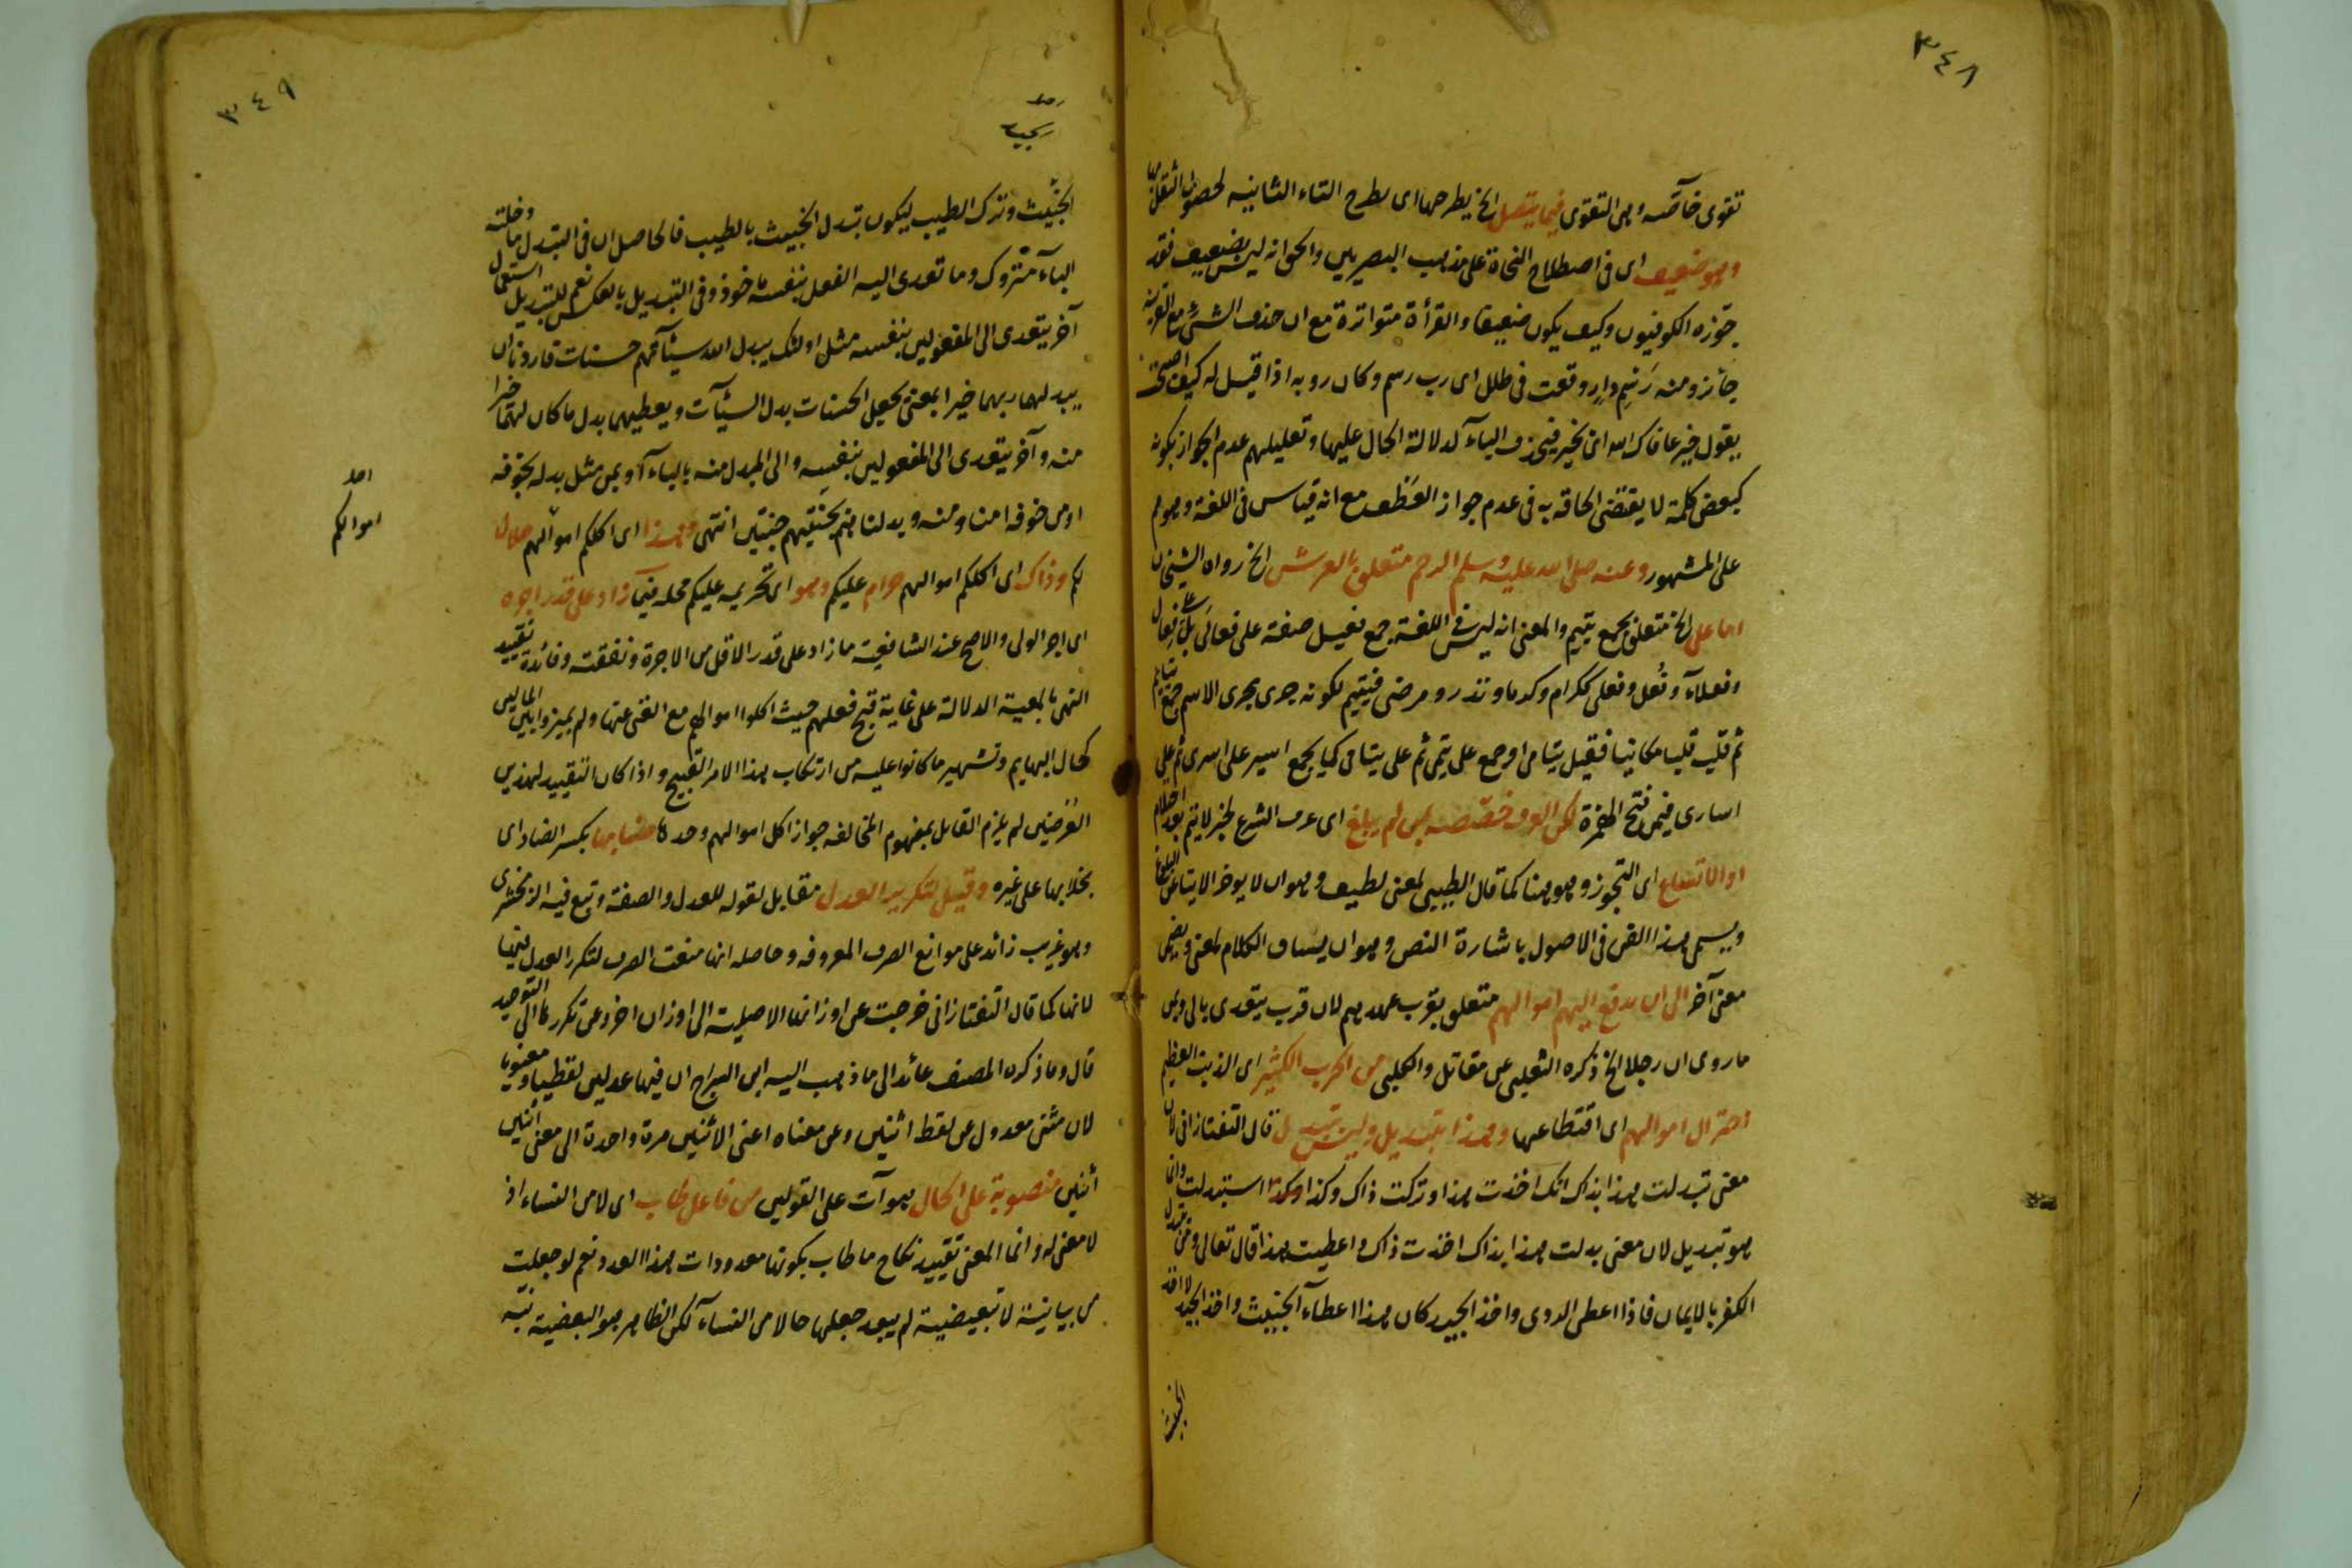 ٣٤٨
تقوى خاصة وهى التقوى فيما يتصل الخ بطرحها اى بطرح التاء الثانية لحصول الثقل بها
وهو ضعيف اى فى اصطلاح النحاة على مذهب البصريين والحق انه ليس بضعيف فقد
جوزه الكوفيون وكيف يكون ضعيفا والقرأة متواترة مع ان حذف الشئ مع القرينة
جائز ومنه رسم دار وقفت فى طلل اى رب رسم وكان روبه اذا قيل له كيف اصبحت
يقول خير عافاك الله اى بخير فيحذف الباء لدلالة الحال عليها وتعليلهم عدم الجواز بكونه
كبعض كلمة لا يقتضى الحاقه به فى عدم جواز العطف مع انه قياس فى اللغة وهو لم
على المشهور وعنه صلى الله عليه وسلم الرحم متعلق بالعرش الخ رواه الشيخان
اما على الخ متعلق بجمع يتيم والمعنى انه ليس فى اللغة جمع فعيل صفة على فعالى بل على فعال
وفعلاء وفعل وفعلى ككرام وكرماء ونذر ومرضى فيتيم لكونه جرى مجرى الاسم جمع يتايم
ثم قلب قلبا مكانيا فقيل يتامى او جمع على يتمى ثم على يتامى كما يجمع اسير على اسرى ثم على
اسارى فيمن فتح الهمزة لكن العرف خصصه بمن لم يبلغ اى عرف الشرع لخبر لا يتم بعد احتلام
او الاتساع اى التجوز وهو هنا كما قال الطيبى لمعنى لطيف وهو ان لا يوخر الايتاء عن البلوغ
ويسمى هذا الفن فى الاصول باشارة النص وهو ان يساق الكلام لمعنى ويضمن
معنى آخر الى ان يدفع اليهم اموالهم متعلق بقرب عهدهم لان قرب يتعدى بالى ومن
ما روى ان رجلا الخ ذكره الثعلبى عن مقاتل والكلبى من الحرب الكثير اى الذنب العظيم
اختزال اموالهم اى اقتطاعها وهذا تبديل وليس تبدل قال التفتازانى لان
معنى تبدلت هذا بذاك انك اخذت هذا وتركت ذاك وكذا استبدلت وانما
هو تبديل لان معنى بدلت هذا بذاك اخذت ذاك واعطيت هذا قال تعالى ومن يتبدل
الكفر بالايمان فاذا اعطى الردى واخذ الجيد كان هذا اعطاء الخبيث واخذ الجيد لا اخذ
الخبيث
٣٤٩
الخبيث وترك الطيب ليكون تبدل الخبيث بالطيب فالحاصل ان فى التبدل ما دخلته
الباء متروك وما تعدى اليه الفعل بنفسه ماخوذ وفى التبديل بالعكس نعم للتبديل استعمال
آخر يتعدى الى المفعولين بنفسه مثل اولئك يبدل الله سيئاتهم حسنات فاردنا ان
يبدلهما ربهما خيرا بمعنى يجعل الحسنات بدل السيئات ويعطيهما بدل ما كان لهما خيرا
منه وآخر يتعدى الى المفعولين بنفسه والى المبدل منه بالباء او بمن مثل بدله بخوفه
او من خوفه امنا ومنه وبدلناهم بجنتيهم جنتين انتهى وهذا اى اكلكم اموالهم حلال
اموالكم
لكم وذاك اى اكلكم اموالهم حرام عليكم وهو اى تحريمه عليكم محله فيما زاد على قدر اجره
اى اجر الولى والاصح عند الشافعية ما زاد على قدر الاقل من الاجرة ونفقته وفائدة تقييد
النهى بالمعية الدلالة على غاية قبح فعلهم حيث اكلوا اموالهم مع الغنى عنها ولم يميزوا بين المالين
كحال البهايم وتشهير ما كانوا عليه من ارتكاب هذا الامر القبيح واذا كان التقييد لهذين
الغرضين لم يلزم القايل بمفهوم المخالفة جواز اكل اموالهم وحدها مضنا بها بكسر الضاد اى
بخلا بها على غيره وقيل لتكرير العدل مقابل لقوله للعدل والصفة وتبع فيه الزمخشرى
وهو غريب زائد على موانع الصرف المعروفة وحاصله انها منعت الصرف لتكرر العدل فيها
لانها كما قال التفتازانى خرجت عن اوزانها الاصلية الى اوزان اخر وعن تكررها الى التوحيد
قال وما ذكره المصنف عائد الى ما ذهب اليه ابن السراج ان فيها عدلين لفظيا ومعنويا
لان مثنى معدول عن لفظ اثنين وعن معناه اعنى الاثنين مرة واحدة الى معنى اثنين
اثنين منصوبة على الحال هو آت على القولين من فاعل طاب اى لا من النساء اذ
لا معنى له وانما المعنى تقييد نكاح ما طاب بكونها معدودات هذا العدد نعم لو جعلت
من بيانية لا تبعيضية لم يبعد جعلها حالا من النساء لكن الظاهر هو البعضية